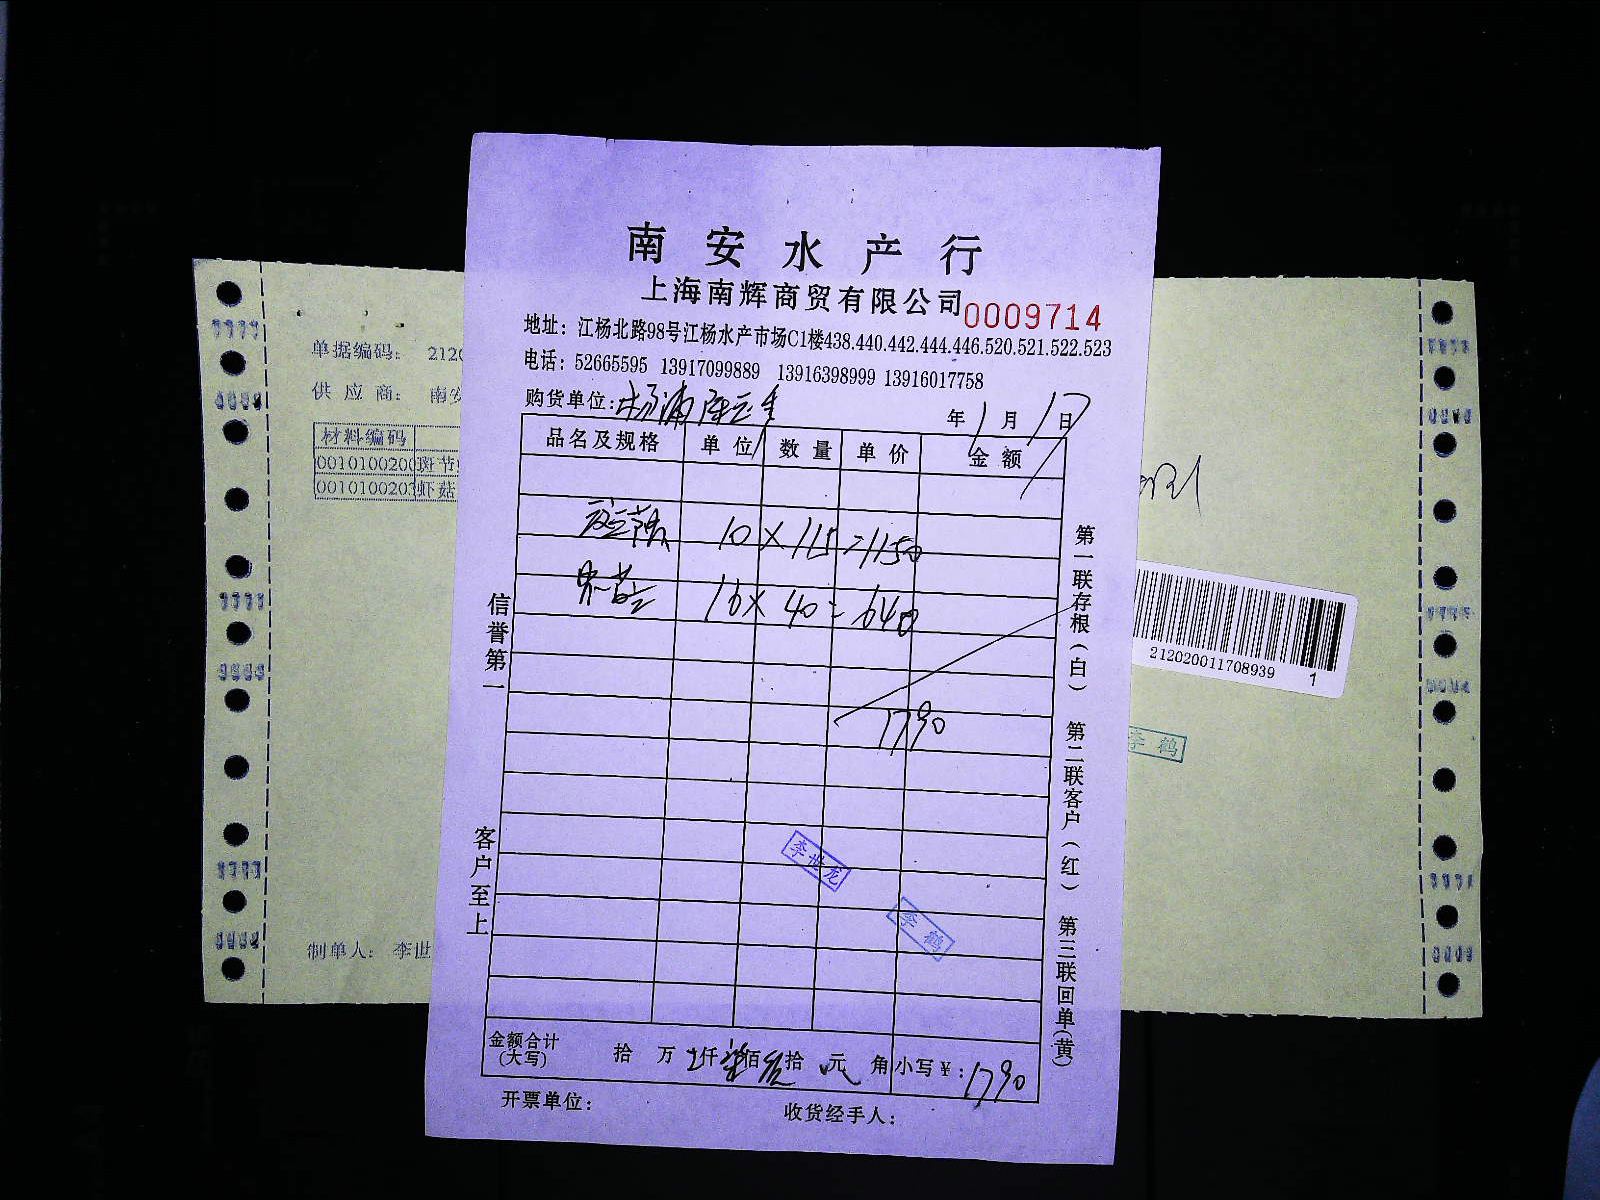 南安水产行
上海南辉商贸有限公司 0009714
地址：江杨北路98号江杨水产市场C1楼438.440.442.444.446.520.521.522.523
电话：52665595 13917099889 13916398999 13916017758
购货单位：杨浦
年1月17日
品名及规格 单位 数量 单价 金额
斑节 10×115=1150
虾菇 16×40=640
1790
李世龙
李鹤
金额合计(大写) 拾 万 仟柒佰 拾 元 角 小写￥：1790
开票单位： 收货经手人：
信誉第一
客户至上
第一联存根(白) 第二联客户(红) 第三联回单(黄)
单据编码： 2120
供应商： 南安
材料编码
0010100200 斑节
0010100203 虾菇
制单人： 李世
212020011708939 1
李鹤